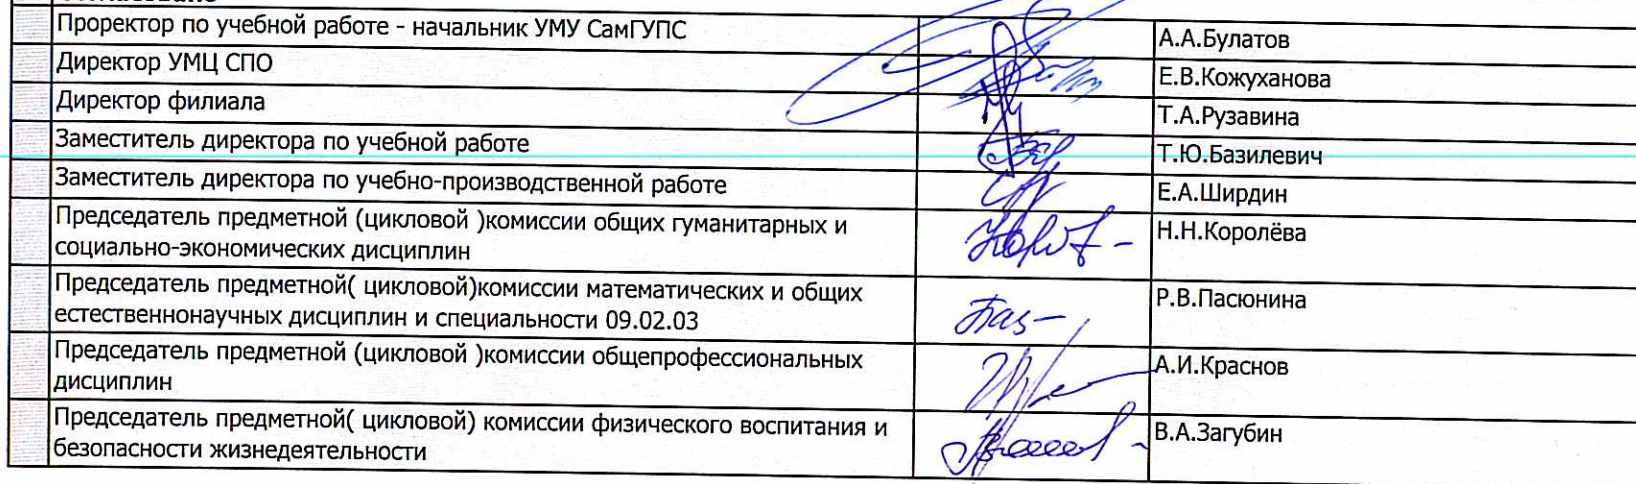 Проректор по учебной работе - начальник УМУ СамГУПС А.А.Булатов
Директор УМЦ СПО Е.В.Кожуханова
Директор филиала Т.А.Рузавина
Заместитель директора по учебной работе Т.Ю.Базилевич
Заместитель директора по учебно-производственной работе Е.А.Ширдин
Председатель предметной (цикловой )комиссии общих гуманитарных и Н.Н.Королёва
социально-экономических дисциплин
Председатель предметной( цикловой)комиссии математических и общих Р.В.Пасюнина
естественнонаучных дисциплин и специальности 09.02.03
Председатель предметной (цикловой )комиссии общепрофессиональных А.И.Краснов
дисциплин
Председатель предметной( цикловой) комиссии физического воспитания и В.А.Загубин
безопасности жизнедеятельности